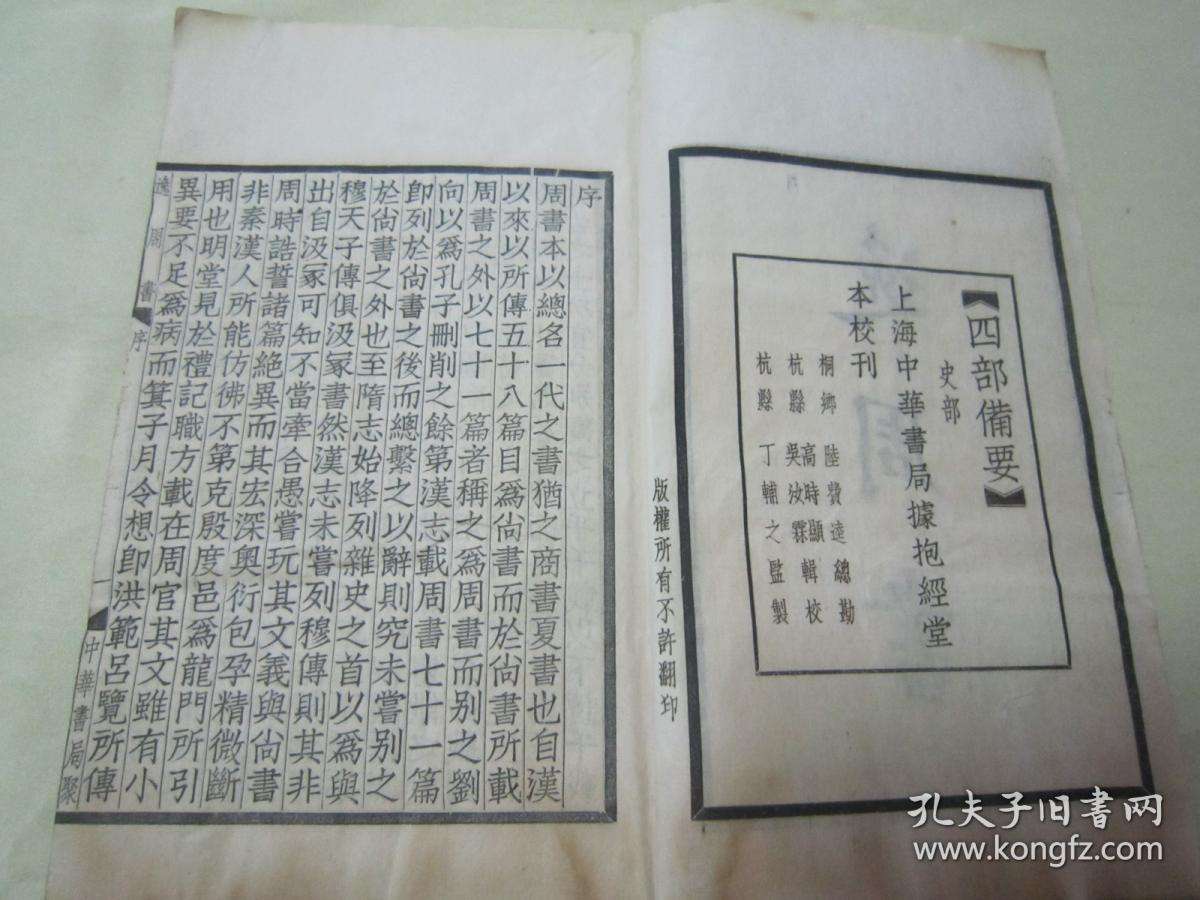 【四部備要】
史部
上海中華書局據抱經堂
本校刊
桐鄉 陸費逵總勘
杭縣 高時顯輯校
杭縣 吳汝霖輯校
杭縣 丁輔之監製
版權所有不許翻印
序
周書本以總名一代之書猶之商書夏書也自漢
以來以所傳五十八篇目為尚書而於尚書所載
周書之外以七十一篇者稱之為周書而别之劉
向以為孔子刪削之餘第漢志載周書七十一篇
卽列於尚書之後而總繫之以辭則究未嘗别之
於尚書之外也至隋志始降列雜史之首以為與
穆天子傳俱汲冢書然漢志未嘗列穆傳則其非
出自汲冢可知不當牽合愚嘗玩其文義與尚書
周時誥誓諸篇絕異而其宏深奧衍包孕精微斷
非秦漢人所能仿彿不第克殷度邑為龍門所引
用也明堂見於禮記職方載在周官其文雖有小
異要不足為病而箕子月令想卽洪範呂覽所傳
逸周書 序
一
中華書局聚
孔夫子旧书网
www.kongfz.com